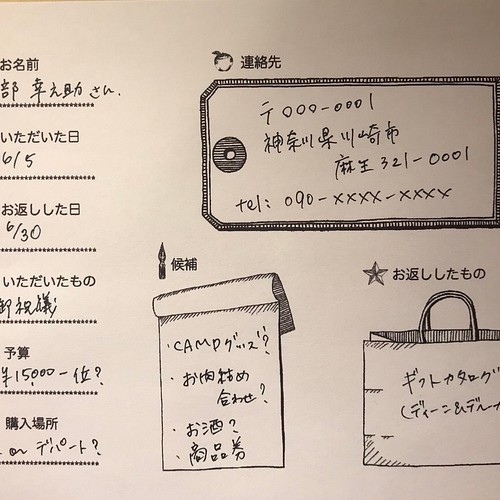 お名前
部 幸之助 さん.
いただいた日
6/5
お返しした日
6/30
いただいたもの
御祝儀
予算
¥15,000-位?
購入場所
or デパート?
連絡先
〒000-0001
神奈川県川崎市
麻生321-0001
tel: 090-xxxx-xxxx
候補
・CAMPグッズ?
・お肉詰め
合わせ?
・お酒?
・商品券
お返ししたもの
ギフトカタログ
(ディーン&デルー